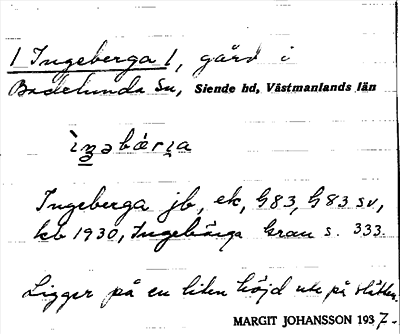 1 Ingeberga 1, gård i
Badelunda Sn, Siende hd, Västmanlands län
ìŋəbǽria
Ingeberga jb, ek, G83, G83 SV,
kb 1930, Ingebärga Grau s. 333.
Ligger på en liten höjd ute på slätten.
MARGIT JOHANSSON 1937.